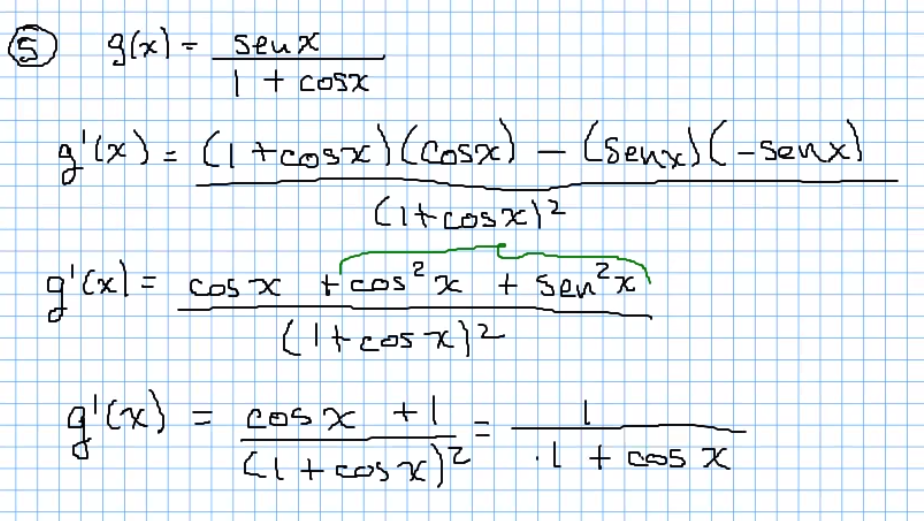 5 g(x) = sen x / 1 + cos x
g'(x) = (1 + cos x)(cos x) − (sen x)(−sen x) / (1 + cos x)²
g'(x) = cos x + cos² x + sen² x / (1 + cos x)²
g'(x) = cos x + 1 / (1 + cos x)² = 1 / 1 + cos x